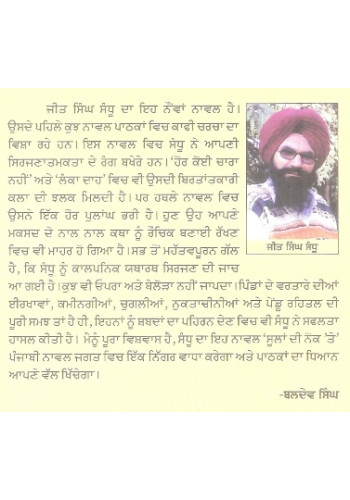 ਜੀਤ ਸਿੰਘ ਸੰਧੂ ਦਾ ਇਹ ਨੌਂਵਾਂ ਨਾਵਲ ਹੈ।
ਉਸਦੇ ਪਹਿਲੇ ਕੁਝ ਨਾਵਲ ਪਾਠਕਾਂ ਵਿਚ ਕਾਫੀ ਚਰਚਾ ਦਾ
ਵਿਸ਼ਾ ਰਹੇ ਹਨ। ਇਸ ਨਾਵਲ ਵਿਚ ਸੰਧੂ ਨੇ ਆਪਣੀ
ਸਿਰਜਣਾਤਮਕਤਾ ਦੇ ਰੰਗ ਬਖੇਰੇ ਹਨ। ‘ਹੋਰ ਕੋਈ ਚਾਰਾ
ਨਹੀਂ’ ਅਤੇ ‘ਲੰਕਾ ਦਾਹ’ ਵਿਚ ਵੀ ਉਸਦੀ ਬਿਰਤਾਂਤਕਾਰੀ
ਕਲਾ ਦੀ ਝਲਕ ਮਿਲਦੀ ਹੈ। ਪਰ ਹਥਲੇ ਨਾਵਲ ਵਿਚ
ਉਸਨੇ ਇੱਕ ਹੋਰ ਪੁਲਾਂਘ ਭਰੀ ਹੈ। ਹੁਣ ਉਹ ਆਪਣੇ
ਮਕਸਦ ਦੇ ਨਾਲ ਨਾਲ ਕਥਾ ਨੂੰ ਰੌਚਿਕ ਬਣਾਈ ਰੱਖਣ
ਵਿਚ ਵੀ ਮਾਹਰ ਹੋ ਗਿਆ ਹੈ। ਸਭ ਤੋਂ ਮਹੱਤਵਪੂਰਨ ਗੱਲ
ਹੈ, ਕਿ ਸੰਧੂ ਨੂੰ ਕਾਲਪਨਿਕ ਯਥਾਰਥ ਸਿਰਜਣ ਦੀ ਜਾਚ
ਆ ਗਈ ਹੈ। ਕੁਝ ਵੀ ਓਪਰਾ ਅਤੇ ਬੇਲੋੜਾ ਨਹੀਂ ਜਾਪਦਾ। ਪਿੰਡਾਂ ਦੇ ਵਰਤਾਰੇ ਦੀਆਂ
ਈਰਖਾਵਾਂ, ਕਮੀਨਗੀਆਂ, ਚੁਗਲੀਆਂ, ਨੁਕਤਾਚੀਨੀਆਂ ਅਤੇ ਪੇਂਡੂ ਰਹਿਤਲ ਦੀ
ਪੂਰੀ ਸਮਝ ਤਾਂ ਹੈ ਹੀ, ਇਹਨਾਂ ਨੂੰ ਸ਼ਬਦਾਂ ਦਾ ਪਹਿਰਨ ਦੇਣ ਵਿਚ ਵੀ ਸੰਧੂ ਨੇ ਸਫਲਤਾ
ਹਾਸਲ ਕੀਤੀ ਹੈ। ਮੈਨੂੰ ਪੂਰਾ ਵਿਸ਼ਵਾਸ ਹੈ, ਸੰਧੂ ਦਾ ਇਹ ਨਾਵਲ ‘ਸੂਲਾਂ ਦੀ ਨੋਕ ’ਤੇ’
ਪੰਜਾਬੀ ਨਾਵਲ ਜਗਤ ਵਿਚ ਇੱਕ ਨਿੱਗਰ ਵਾਧਾ ਕਰੇਗਾ ਅਤੇ ਪਾਠਕਾਂ ਦਾ ਧਿਆਨ
ਆਪਣੇ ਵੱਲ ਖਿੱਚੇਗਾ।
-ਬਲਦੇਵ ਸਿੰਘ
ਜੀਤ ਸਿੰਘ ਸੰਧੂ